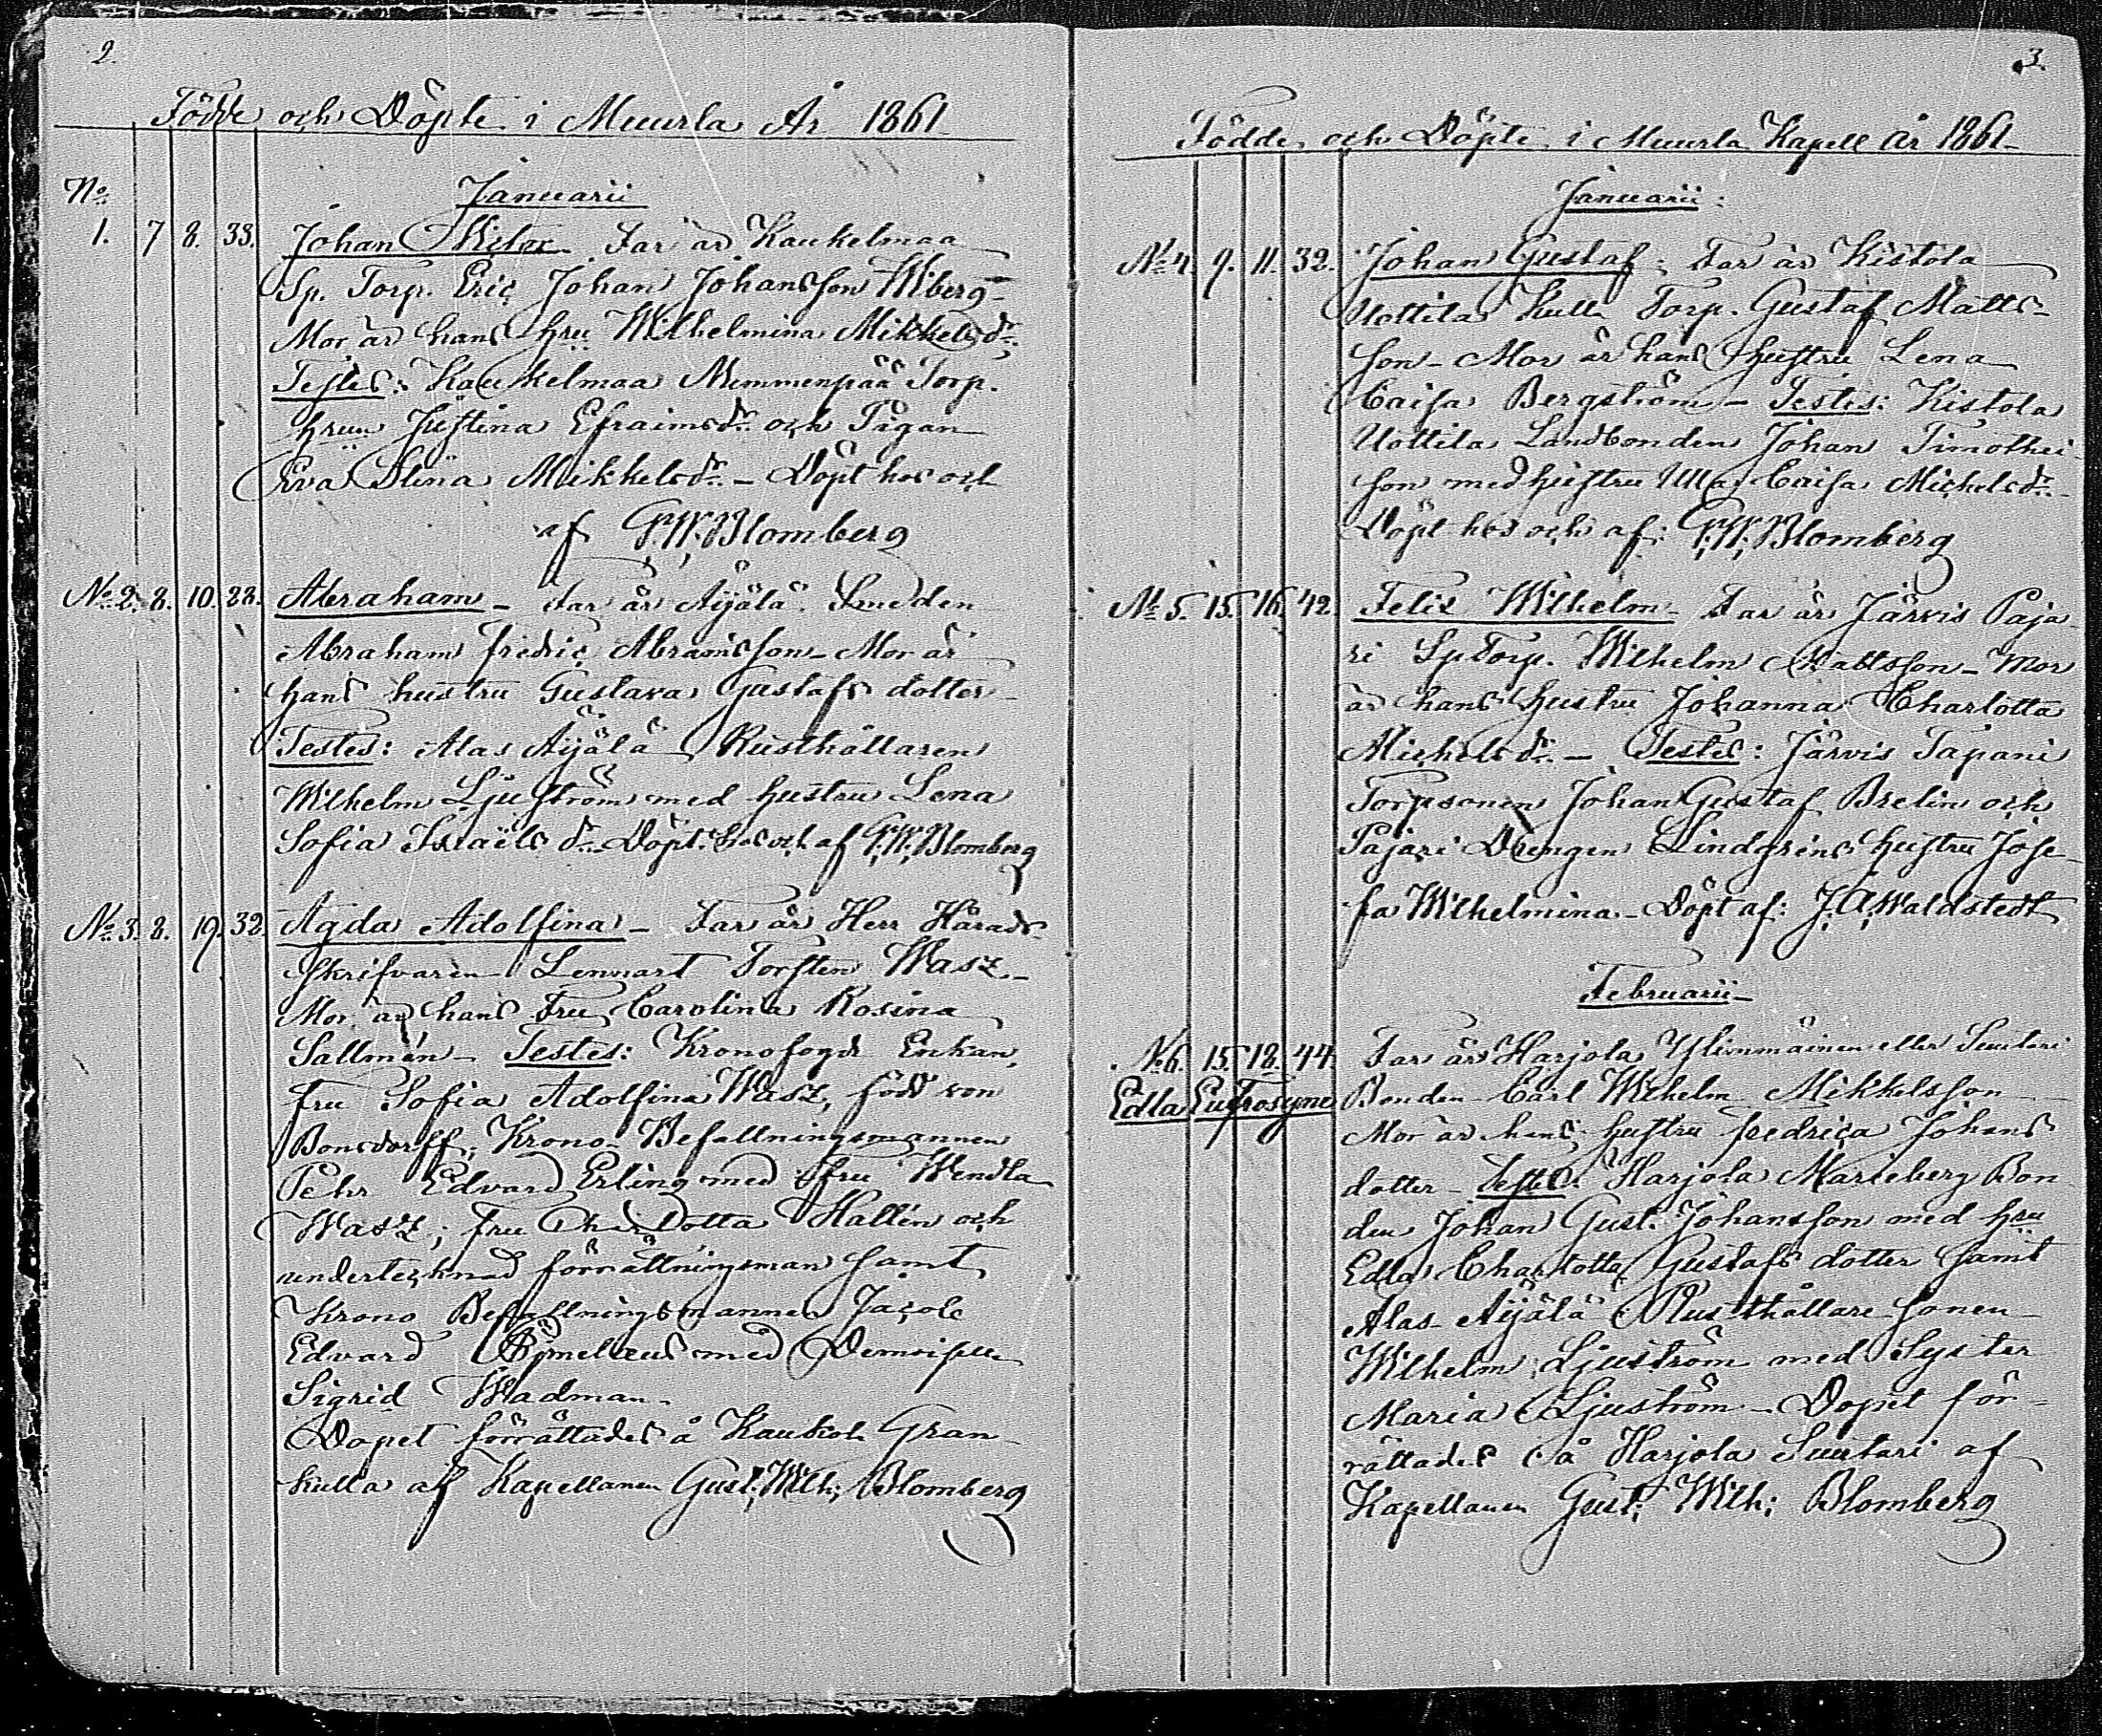 2.
Födde och Döpte i Muurla År 1861
No
Januarii
1. 7 8. 33. Johan Victor. Far är Kaukelmaa
Sp. Torp. Eric Johan Johansson Wiberg-
Mor är hans hru Wilhelmina Mikkelsdr.
Testes: Kaukelmaa Nummenpää Torp.
hrun Justina Efraimsdr och Pigan
Eva Stina Mikkelsdr. - Döpt hos och
af G.W. Blomberg
No 2. 8. 10. 28. Abraham - Far är Äijälä Smeden
Abraham Fredric Abramsson - Mor är
hans hustru Gustava Gustafs dotter-
Testes: Alas Äijälä Rusthållaren
Wilhelm Ljuström med hustru Lena
Sofia Israëls dr. Döpt hos och af G.W. Blomberg
No 3. 8. 19. 32 Agda Adolfina - Far är Herr Härads-
skrifvaren Lennart Torsten Wasz.-
Mor är hans Fru Carolina Rosina
Sallmén - Testes: Kronofogde Enkan,
Fru Sofia Adolfina Wasz, född von
Bonsdorff, Krono-Befallningsmannen
Pehr Edvard Erling med fru Wendla
Wasz; fru Charlotta Hallén och
undertecknad förrättningsman samt
Krono Befallningsmannen Jacob
Edvard med Demoisell
Sigrid Wadman.
Dopet förrättades å Kaukola Gran-
kulla af Kapellanen Gust. Wilh. Blomberg
3.
Födde och Döpte i Muurla Kapell år 1861
Januarii:
No 4. 9. 11. 32. Johan Gustaf: Far är Kistola
Uottila Kulla Torp. Gustaf Matts-
son - Mor är hans hustru Lena
Caisa Bergström - Testes: Kistola
Uottila Landbonden Johan Timothei
son med hustru Ulla Caisa Michelsdr.
Döpt hos och af: G.W. Blomberg
No 5. 15. 16. 42. Felix Wilhelm - Far är Järvis Paja-
ri SpTorp. Wilhelm Mattsson - Mor
är hans hustru Johanna Charlotta
Michelsdr. - Testes: Järvis Tapani
Torpsonen Johan Gustaf Brelin och
Pajari Drengen Lindgréns hustru Jose-
fa Wilhelmina - Döpt af: J. A. Waldstedt
Februarii
No 6. 15. 18. 44. Far är Harjola eller Suutari
Edla Eufrosyne Bonden Carl Wilhelm Mikkelsson
Mor är hans hustru Fredrica Johans
dotter - Testes: Harjola Marieberg Bon-
den Johan Gust. Johansson med hru
Edla Charlotta Gustafs dotter samt
Alas Äijälä Rusthållare sonen
Wilhelm Ljuström med Syster
Maria Ljuström - Dopet för-
rättades å Harjola Suutari af
Kapellanen Gust. Wilh: Blomberg